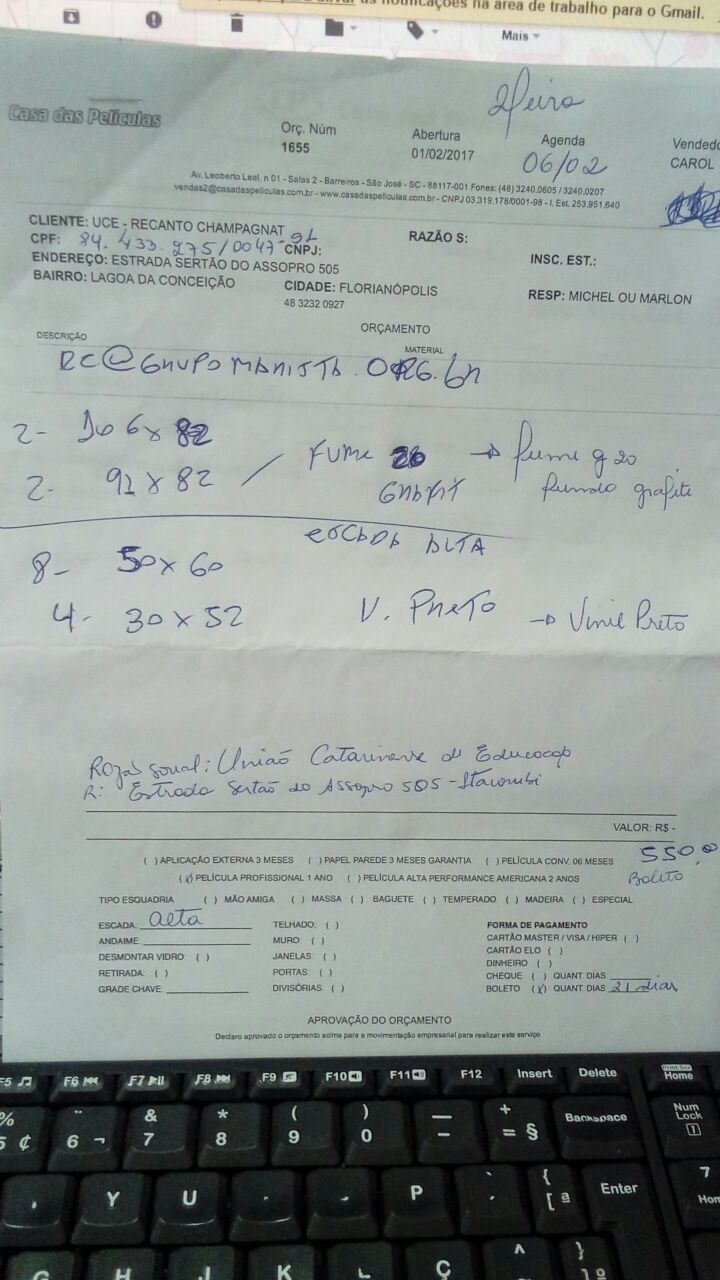 ativar as notificações na área de trabalho para o Gmail.
Mais
2ª feira
Casa das Películas
Orç. Núm
1655
Abertura
01/02/2017
Agenda
06/02
Vendedo
CAROL
Av. Leoberto Leal, n 01 - Salas 2 - Barreiros - São José - SC - 88117-001 Fones: (48) 3240.0605 / 3240.0207
vendas2@casadaspeliculas.com.br - www.casadaspeliculas.com.br - CNPJ 03.319.178/0001-98 - I. Est. 253.951.640
CLIENTE: UCE - RECANTO CHAMPAGNAT
CPF: 84.433.275/0047-91 CNPJ:
RAZÃO S:
INSC. EST.:
ENDEREÇO: ESTRADA SERTÃO DO ASSOPRO 505
BAIRRO: LAGOA DA CONCEIÇÃO
CIDADE: FLORIANÓPOLIS
RESP: MICHEL OU MARLON
48 3232 0927
ORÇAMENTO
DESCRIÇÃO
MATERIAL
RC@GRUPOMARISTA.ORG.BR
2- 106 x 82
2- 91 x 82 / FUME 20 → fume g 20
GRAFIT fundo grafite
ESCADA ALTA
8- 50 x 60
4- 30 x 52 V. PRETO → Vinil Preto
Razão Social: União Catarinense de Educação
R: Estrada Sertão do Assopro 505 - Itacorubi
VALOR: R$ -
550,00
Boleto
( ) APLICAÇÃO EXTERNA 3 MESES ( ) PAPEL PAREDE 3 MESES GARANTIA ( ) PELÍCULA CONV. 06 MESES
(x) PELÍCULA PROFISSIONAL 1 ANO ( ) PELÍCULA ALTA PERFORMANCE AMERICANA 2 ANOS
TIPO ESQUADRIA ( ) MÃO AMIGA ( ) MASSA ( ) BAGUETE ( ) TEMPERADO ( ) MADEIRA ( ) ESPECIAL
ESCADA: alta
ANDAIME:
DESMONTAR VIDRO: ( )
RETIRADA: ( )
GRADE CHAVE:
TELHADO: ( )
MURO: ( )
JANELAS: ( )
PORTAS: ( )
DIVISÓRIAS: ( )
FORMA DE PAGAMENTO
CARTÃO MASTER / VISA / HIPER ( )
CARTÃO ELO ( )
DINHEIRO ( )
CHEQUE ( ) QUANT DIAS
BOLETO (x) QUANT DIAS 21 dias
APROVAÇÃO DO ORÇAMENTO
Declaro aprovado o orçamento acima para a movimentação empresarial para realizar este serviço
F5 F6 F7 F8 F9 F10 F11 F12 Insert Delete Print Scrn Home
% 5 ¢ ¨ 6 ¬ & 7 * 8 ( 9 ) 0 — - + = § Backspace Num Lock 1
Y U P ` ´ { [ ª Enter 7 Hom
G H J K L Ç ^ ~ } ] º